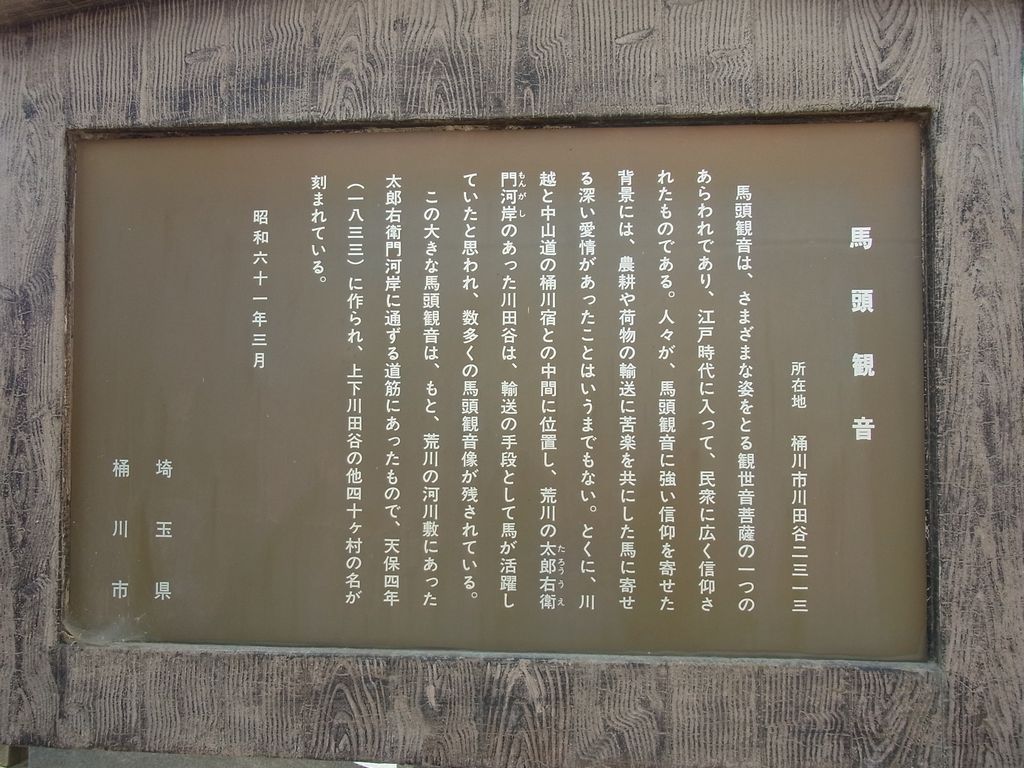 馬頭観音
所在地　桶川市川田谷二三一三
馬頭観音は、さまざまな姿をとる観世音菩薩の一つの
あらわれであり、江戸時代に入って、民衆に広く信仰さ
れたものである。人々が、馬頭観音に強い信仰を寄せた
背景には、農耕や荷物の輸送に苦楽を共にした馬に寄せ
る深い愛情があったことはいうまでもない。とくに、川
越と中山道の桶川宿との中間に位置し、荒川の太郎右衛
たろううえ
門河岸のあった川田谷は、輸送の手段として馬が活躍し
もんがし
ていたと思われ、数多くの馬頭観音像が残されている。
この大きな馬頭観音は、もと、荒川の河川敷にあった
太郎右衛門河岸に通ずる道筋にあったもので、天保四年
（一八三三）に作られ、上下川田谷の他四十ヶ村の名が
刻まれている。
昭和六十一年三月
埼玉県
桶川市